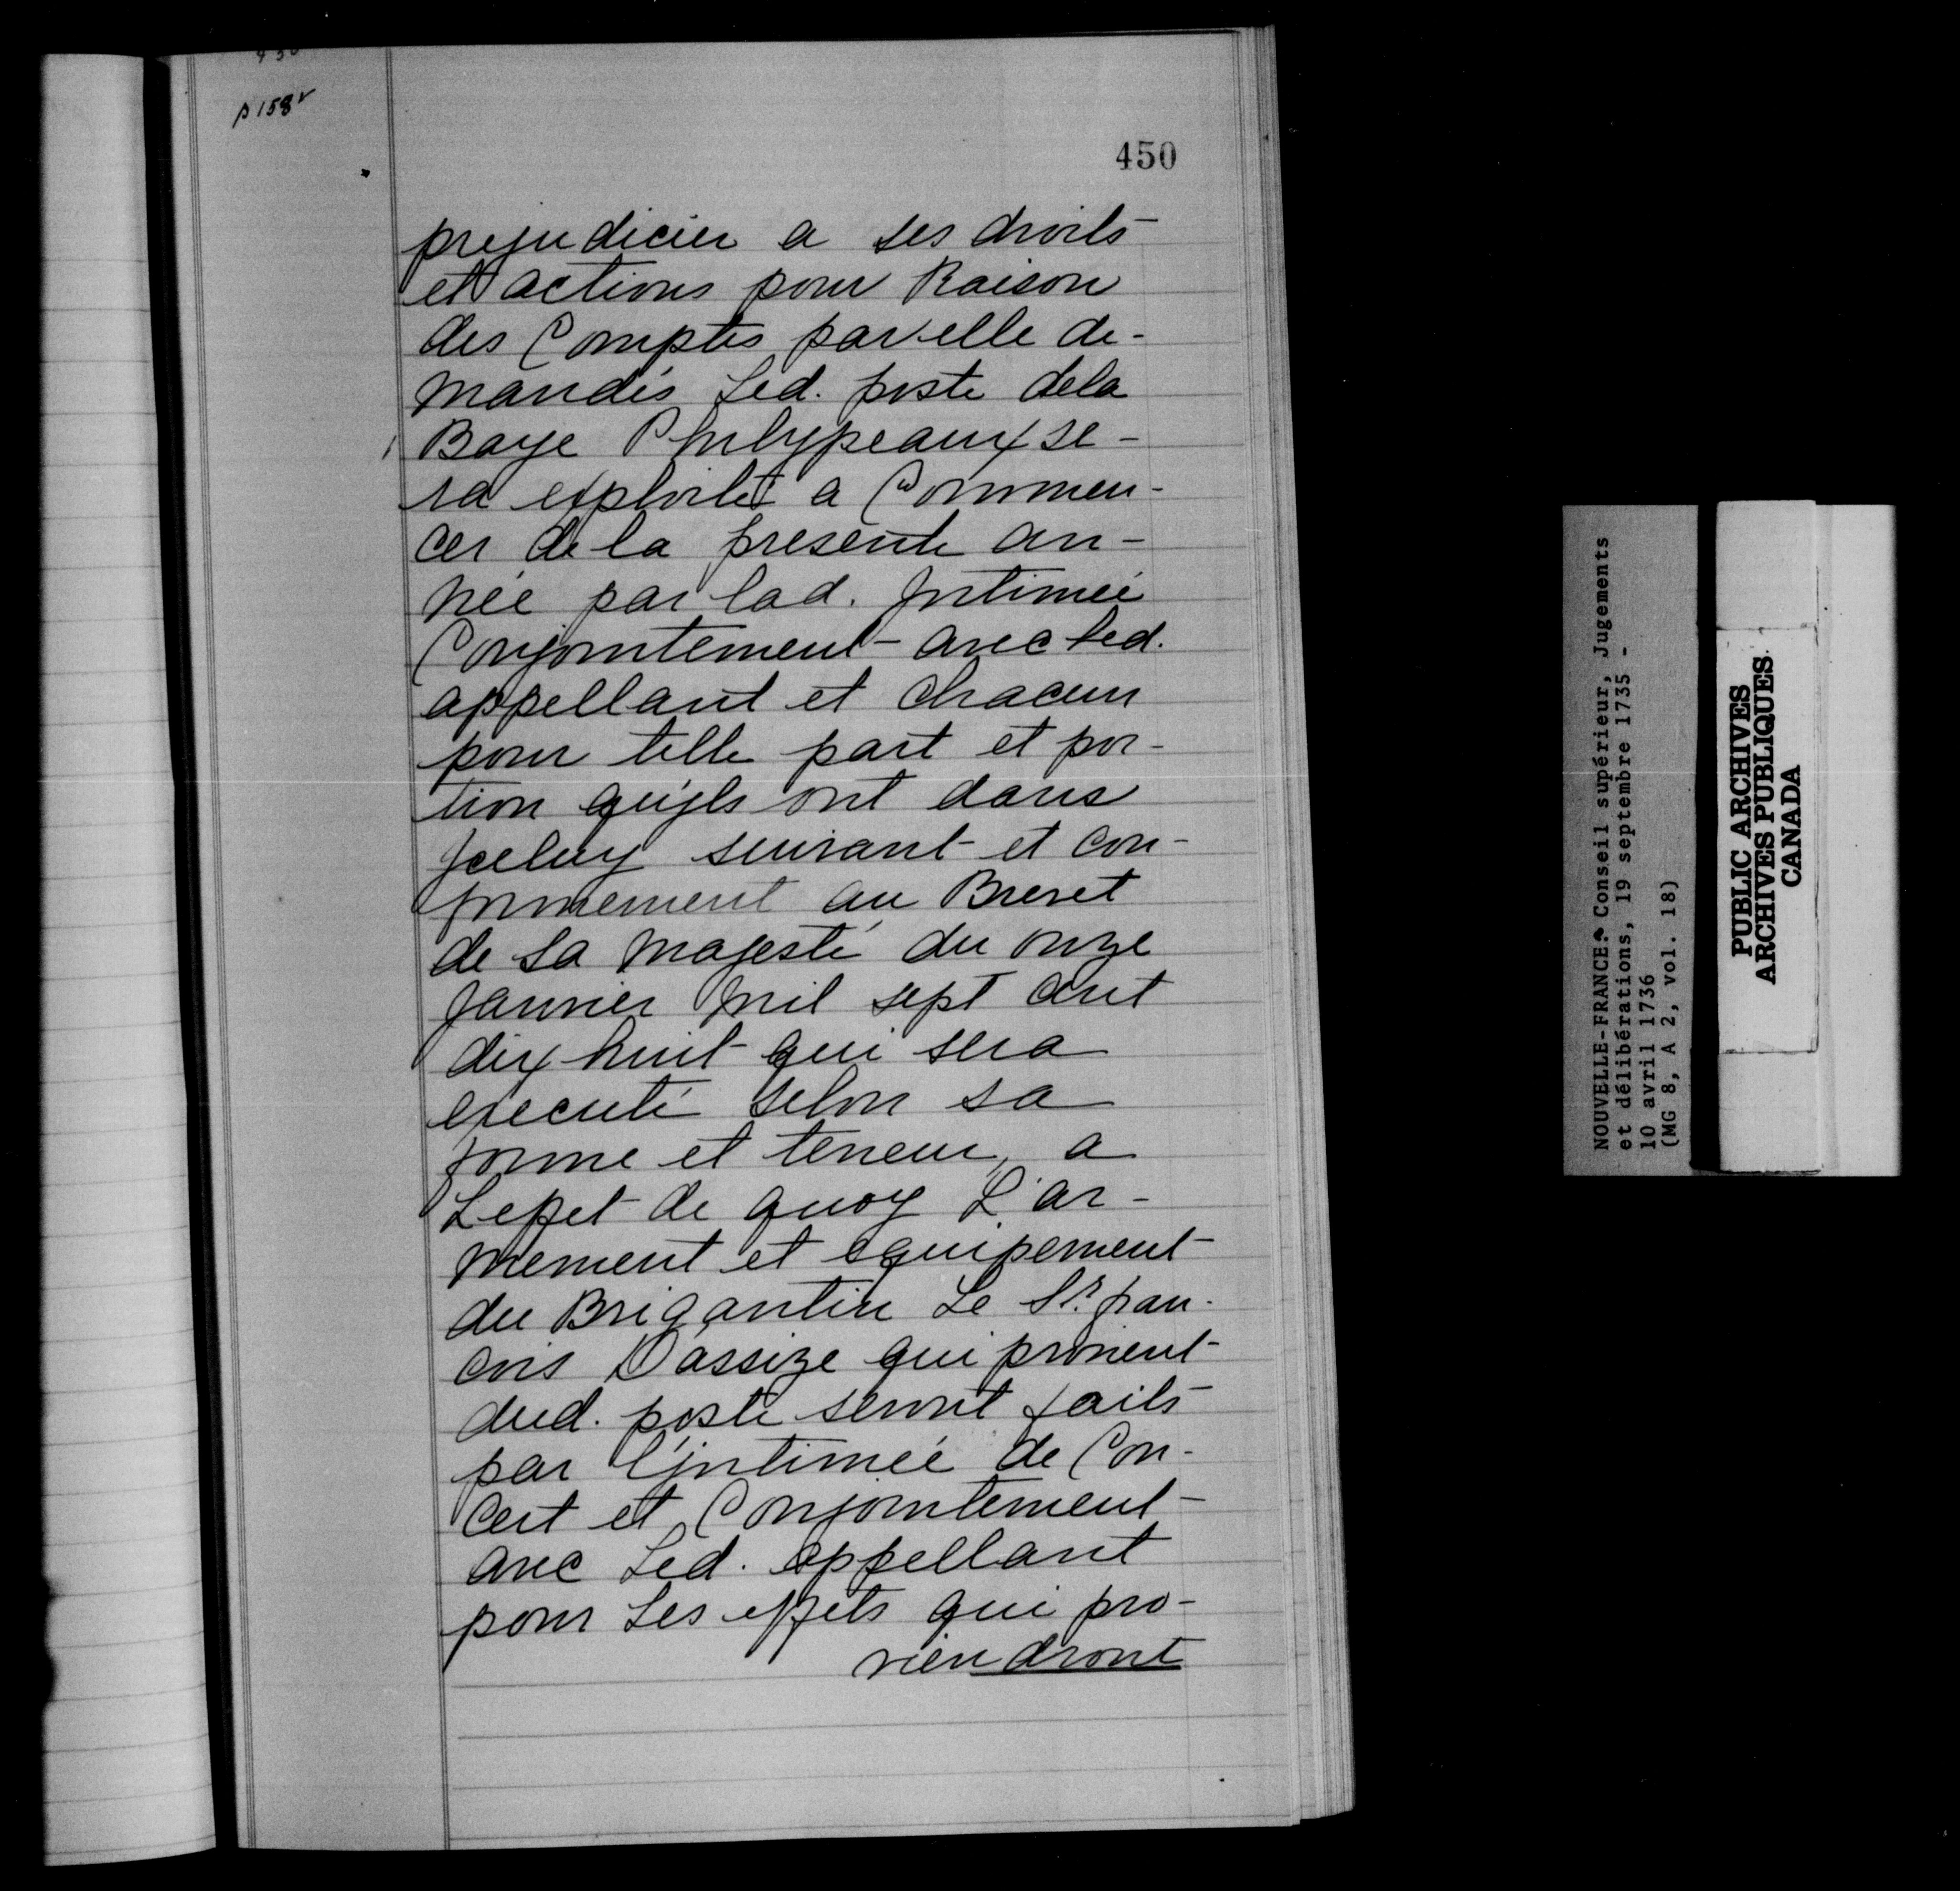 p 158v
450
prejudicier a ses droits
et actions pour Raison
des Comptes par elle de-
mandés Led. poste dela
Baye Philypeaux se-
ra exploité a Commen-
cer de la presente an-
née par lad. Jntimée
Conjointement avec led.
appellant et chacun
pour telle part et por-
tion qu'jls ont dans
Jceluy suivant et con-
formement au Brevet
de Sa Majesté du onze
Janvier Mil sept cent
dix huit qui sera
executé selon sa
forme et teneur, a
Leffet de quoy L'ar-
mement et equipement
du Brigantin Le St. fran-
cois Dassize qui provient
dud. poste seront faits
par l'jntimée de Con-
cert et Conjointement
avec Led. appellant
pour Les effets qui pro-
viendront
NOUVELLE-FRANCE: Conseil supérieur, Jugements
et délibérations, 19 septembre 1735 -
10 avril 1736
(MG 8, A 2, vol. 18)
PUBLIC ARCHIVES
ARCHIVES PUBLIQUES
CANADA